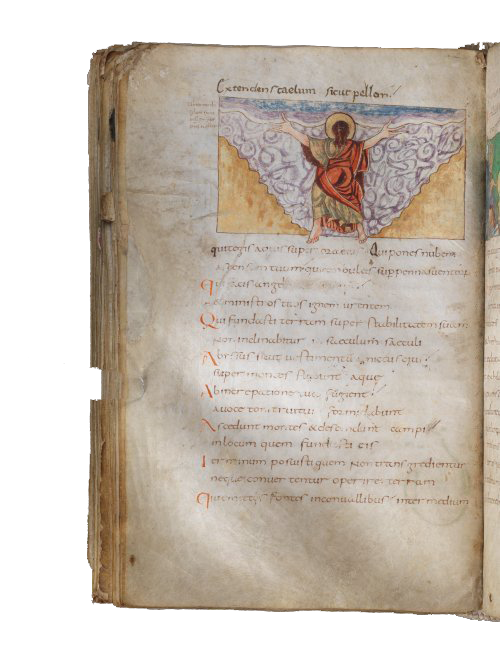 Extendens caelum sicut pellem
qui tegis aquis superiora eius Qui ponis nubem
Qui facis angelos
& ministros tuos ignem urentem
Qui fundasti terram super stabilitatem suam
non inclinabitur in saeculum saeculi
Abyssus sicut uestimentum amictus eius
super montes stabunt aquae
Ab increpatione tua fugient
a uoce tonitrui tui formidabunt
Ascendunt montes & descendunt campi
in locum quem fundasti eis
Terminum posuisti quem non transgredientur
neque conuertentur operire terram
Qui emittis fontes in conuallibus inter medium